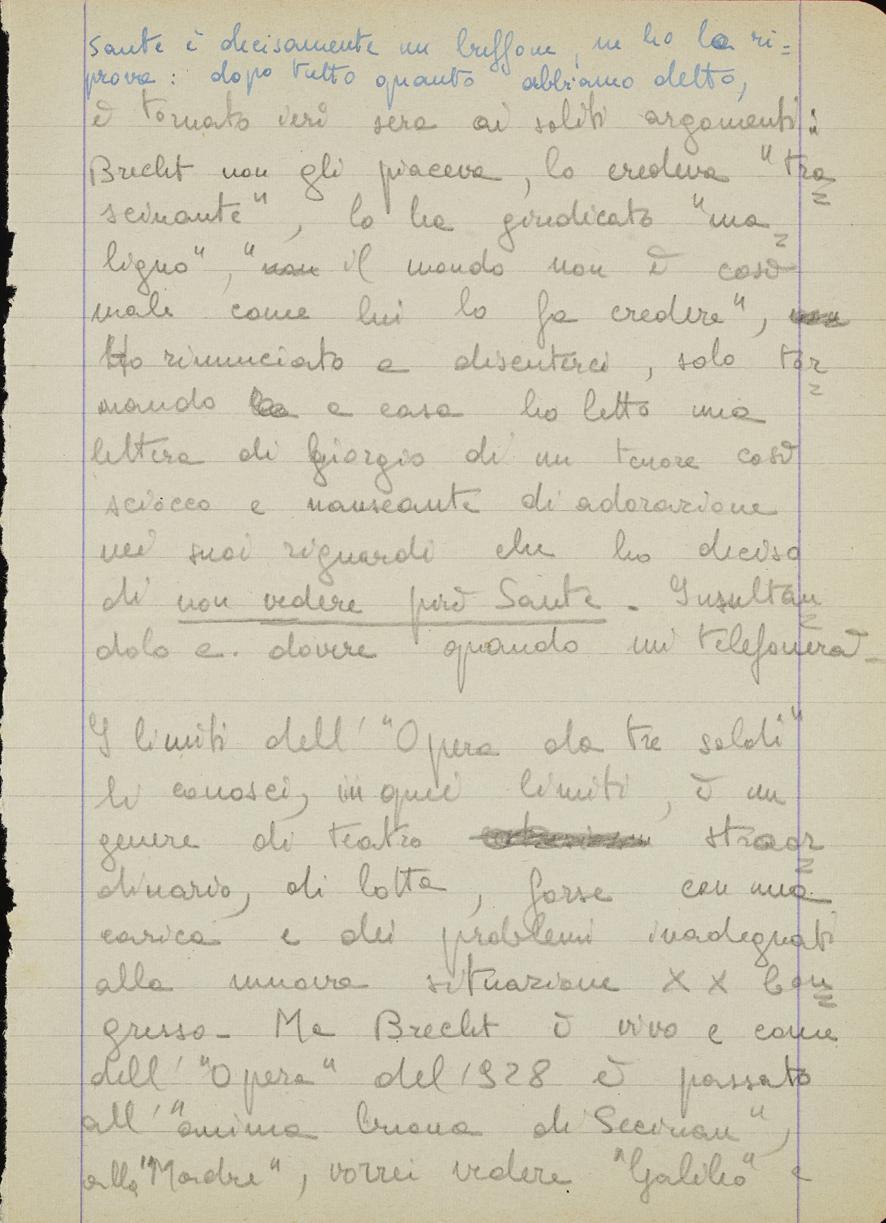 Sante è decisamente un buffone, ne ho la ri=
prova: dopo tutto quanto abbiamo detto,
è tornato ieri sera ai soliti argomenti:
Brecht non gli piaceva, lo credeva "tra=
scinante", lo ha giudicato "ma=
ligno", "non il mondo non è così
male come lui lo fa credere",
Ho rinunciato a discuterci, solo tor=
nando a casa ho letto una
lettera di Giorgio di un tenore così
sciocco e nauseante di adorazione
nei suoi riguardi che ho deciso
di non vedere più Sante - Insultan=
dolo a. dovere quando mi telefonerà -
I limiti dell'"Opera da tre soldi"
li conosci, in quei limiti, è un
genere di teatro straor=
dinario, di lotta, forse con una
carica e dei problemi inadeguati
alla nuova situazione XX Con=
gresso - Ma Brecht è vivo e come
dell'"Opera" del 1928 è passato
all'"anima buona di Secinan",
alla "Madre", vorrei vedere "Galileo" e